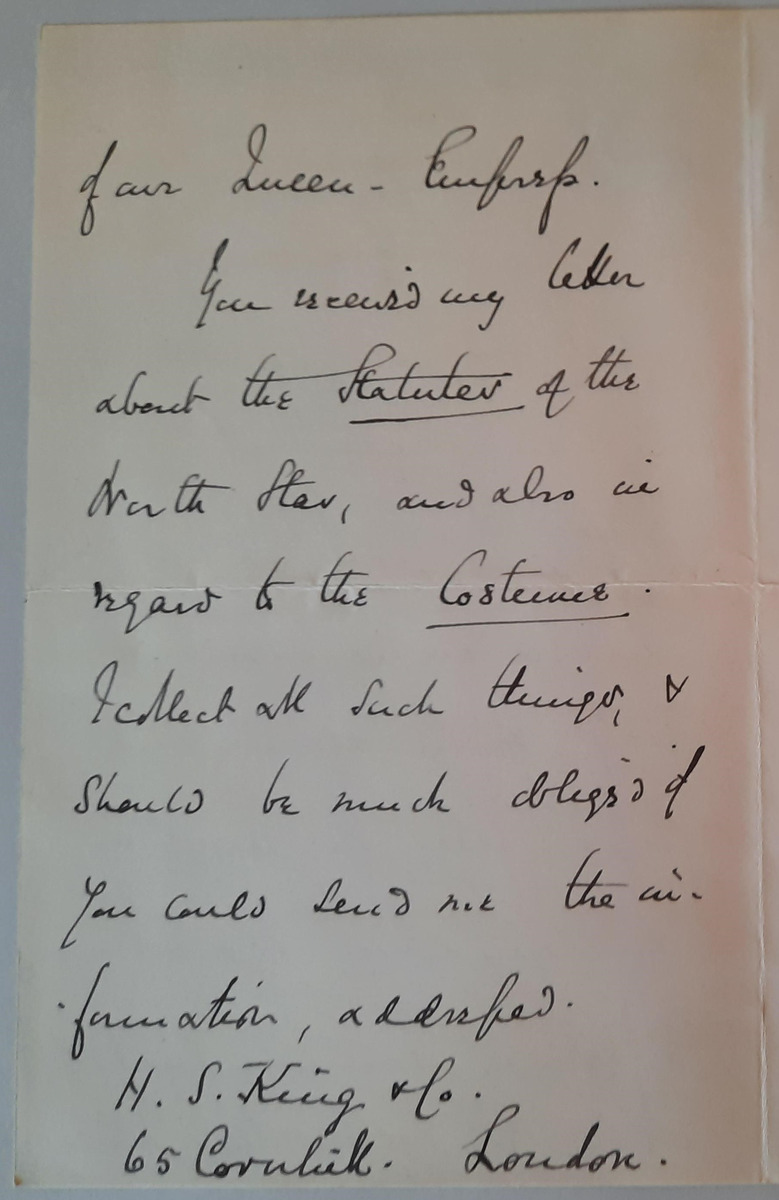 of our Queen - Empress.
You receiv'd my letter
about the Statutes of the
North Star, and also in
regard to the Costume.
I collect all such things, &
should be much oblig'd if
you could send me the in-
formation, addressed.
H. S. King & Co.
65 Cornhill. London.